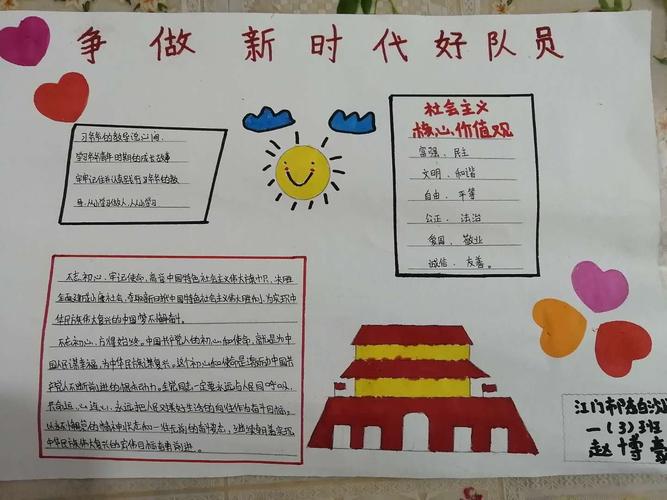 争做新时代好队员
习爷爷的教导记心间,
学习爷爷青年时期的成长故事
牢牢记住并认真践行习爷爷的教
导,从小学习做人、从小学习
社会主义
核心价值观
富强、民主
文明、和谐
自由、平等
公正、法治
爱国、敬业
诚信、友善。
不忘初心,牢记使命,高举中国特色社会主义伟大旗帜,决胜
全面建成小康社会,夺取新时代中国特色社会主义伟大胜利,为实现中
华民族伟大复兴的中国梦不懈奋斗。
不忘初心,方得始终。中国共产党人的初心和使命,就是为中
国人民谋幸福,为中华民族谋复兴。这个初心和使命是激励中国共
产党人不断前进的根本动力。全党同志一定要永远与人民同呼吸、
共命运、心连心,永远把人民对美好生活的向往作为奋斗目标,
以永不懈怠的精神状态和一往无前的奋斗姿态,继续朝着实现
中华民族伟大复兴的宏伟目标奋勇前进。
江门市
一(3)班
赵博